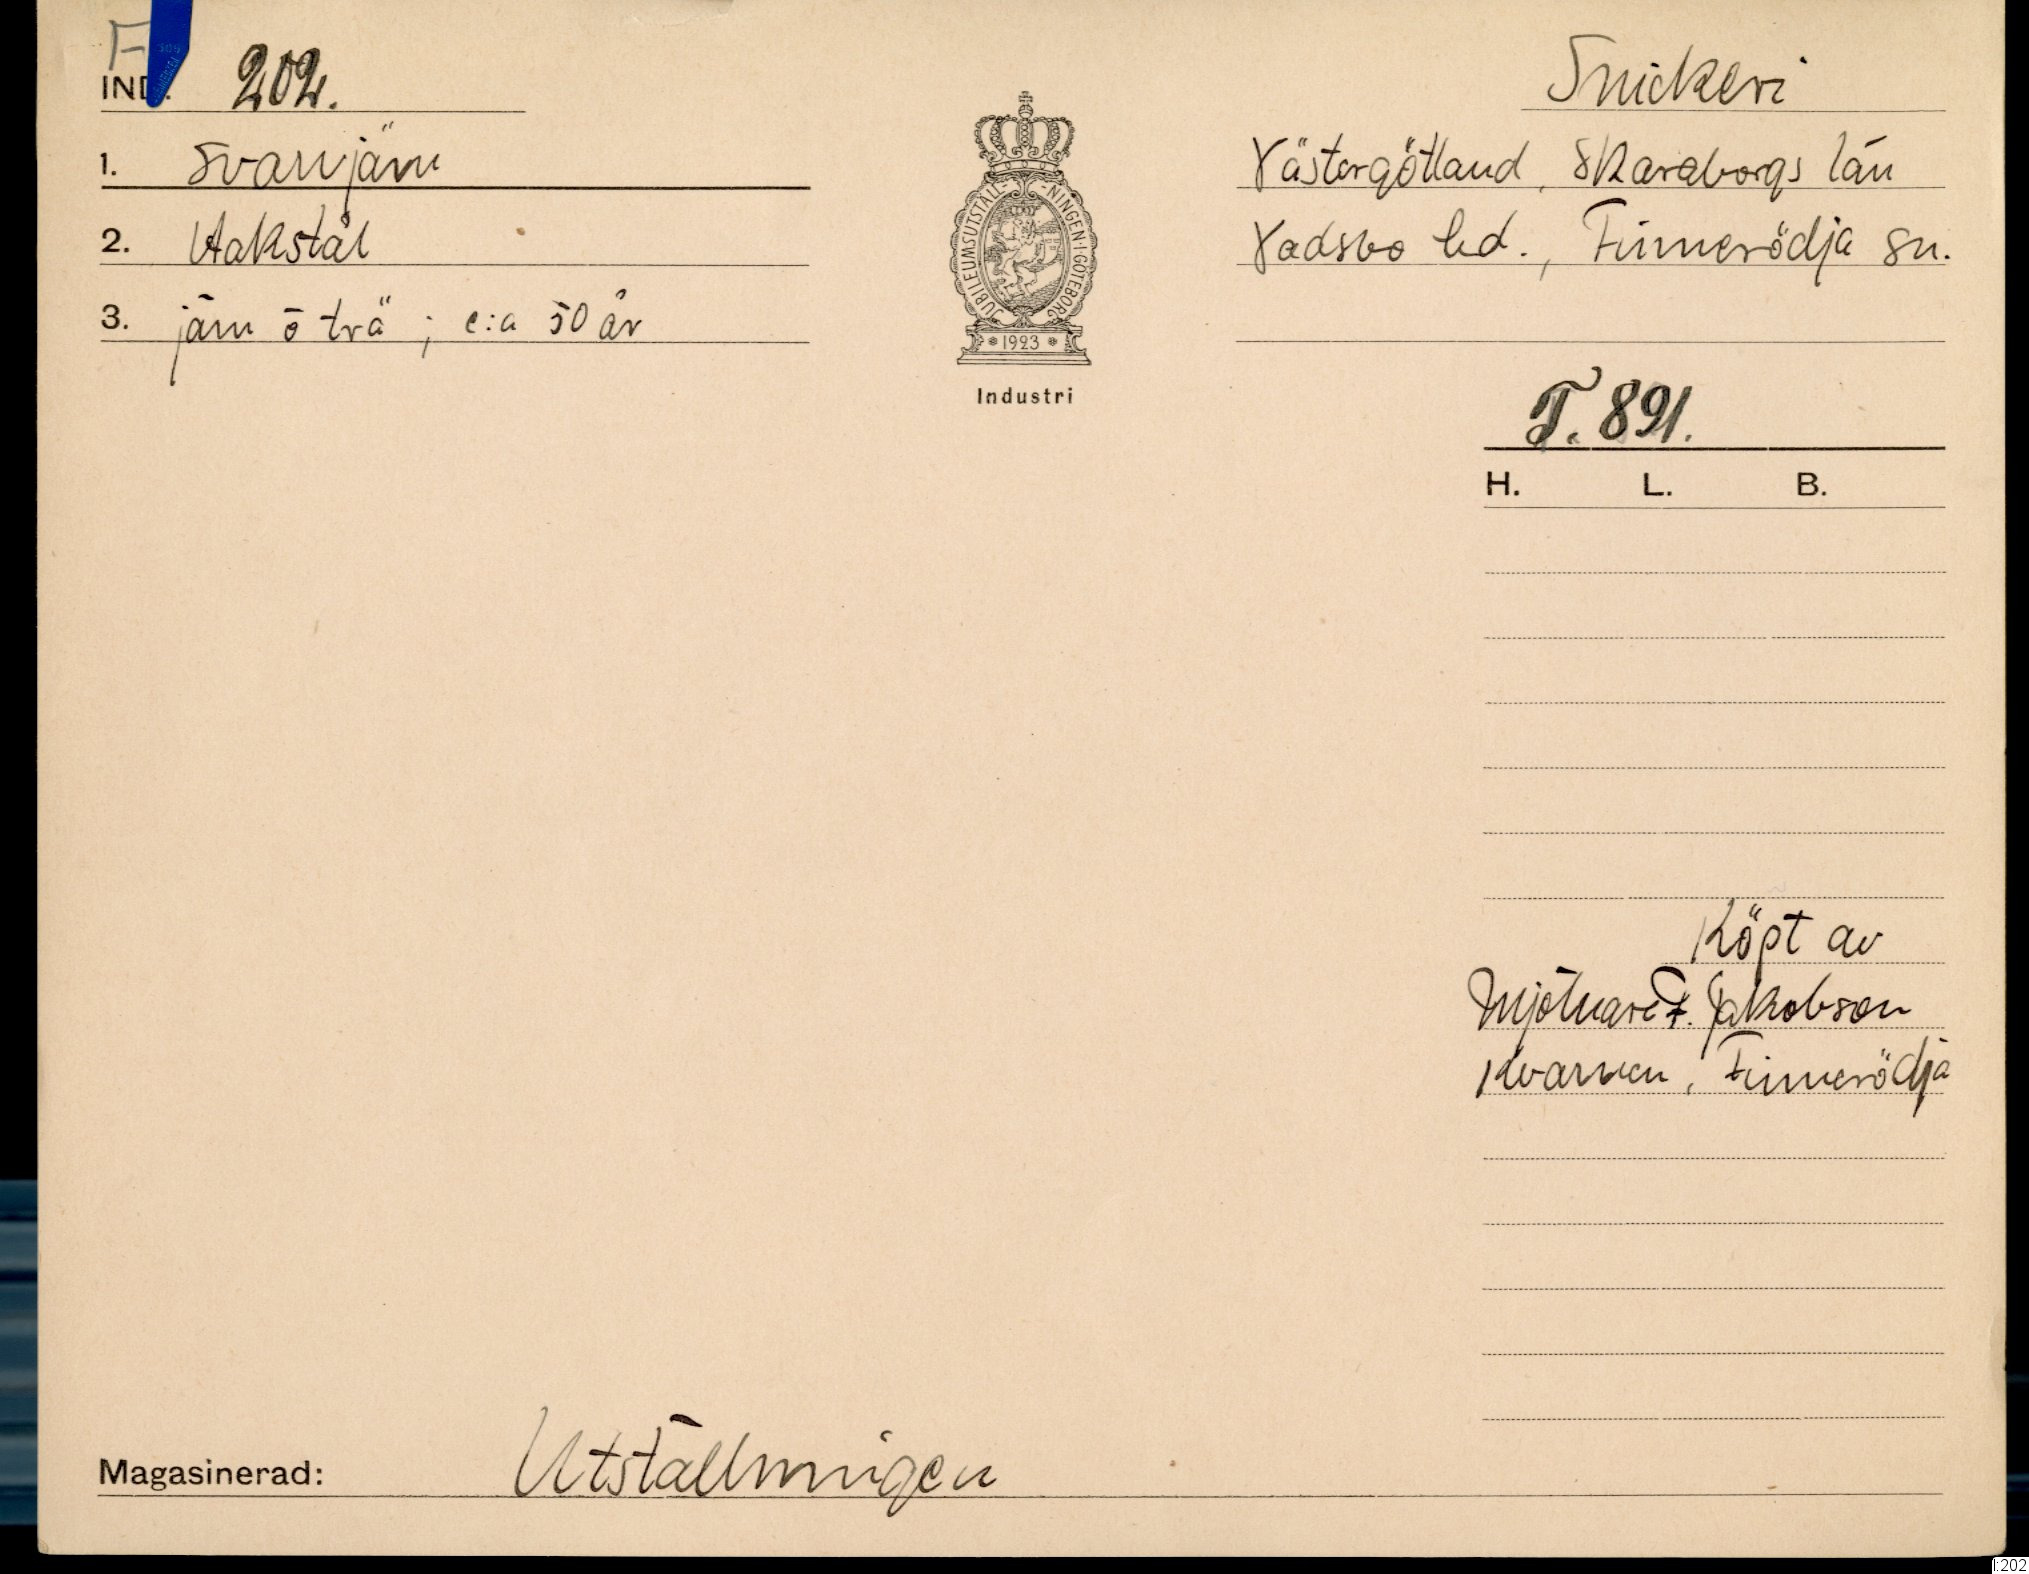 F
IND. 202.
1. Svarvjärn
2. Hakstål
3. järn o trä ; c:a 50 år
JUBILEUMSUTSTÄLL-NINGEN·I·GÖTEBORG
1923
Industri
Snickeri
Västergötland, Skaraborgs län
Vadsbo hd., Finnerödja sn.
T. 891.
H. L. B.
Köpt av
Mjölnare F. Jakobson
Kvarnen, Finnerödja
Magasinerad: Utställningen
I:202